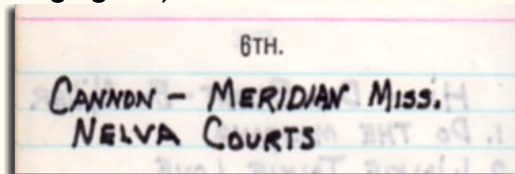 6TH.
CANNON - MERIDIAN MISS.
NELVA COURTS